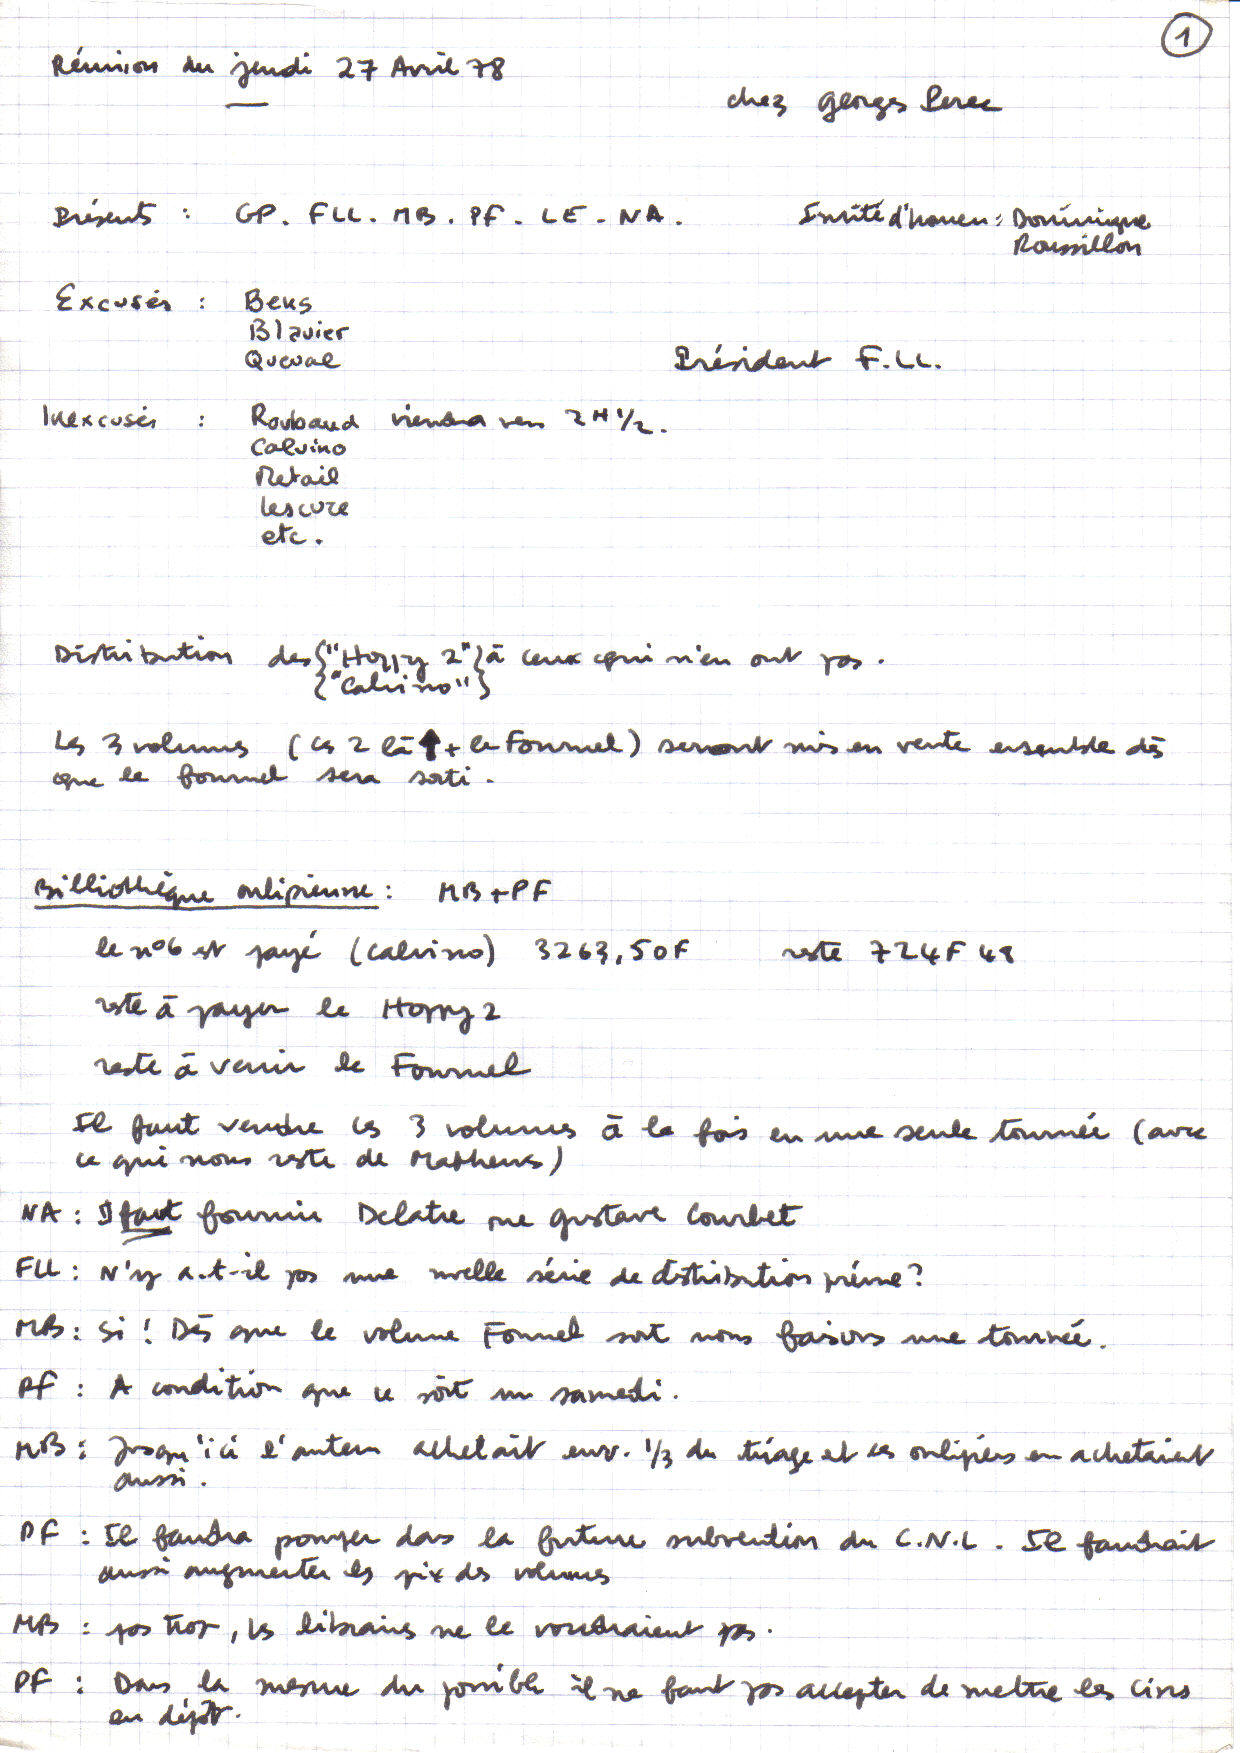 1
Réunion du jeudi 27 Avril 78
chez Georges Perec
Présents : GP. FLL. MB. PF. LE. NA. Invité d'honneur : Dominique
Roussillon
Excusés : Bens
Blavier
Queval
Président F.LL.
Inexcusés : Roubaud viendra vers 2H 1/2.
Calvino
Métail
Lescure
etc.
Distribution des {"Hoppy 2"} à ceux qui n'en ont pas.
{"Calvino"}
Les 3 volumes (les 2 là ↑ + le Fournel) seront mis en vente ensemble dès
que le Fournel sera sorti.
Bibliothèque oulipienne : MB + PF
le n°6 est payé (Calvino) 3263,50F reste 724F 49
reste à payer le Hoppy 2
reste à venir le Fournel
Il faut vendre les 3 volumes à la fois en une seule tournée (avec
ce qui nous reste de Mathews)
NA : Il faut fournir Delatre rue Gustave Courbet
FLL : N'y a.t-il pas une nvelle série de distribution prévue ?
MB : Si ! Dès que le volume Fournel sort nous faisons une tournée.
PF : A condition que ce soit un samedi.
MB : Jusqu'ici l'auteur achetait env. 1/3 du tirage et les oulipiens en achetaient
aussi.
PF : Il faudra pomper dans la future subvention du C.N.L. Il faudrait
aussi augmenter les prix des volumes
MB : pas trop, les libraires ne le voudraient pas.
PF : Dans la mesure du possible il ne faut pas accepter de mettre les livres
en dépôt.